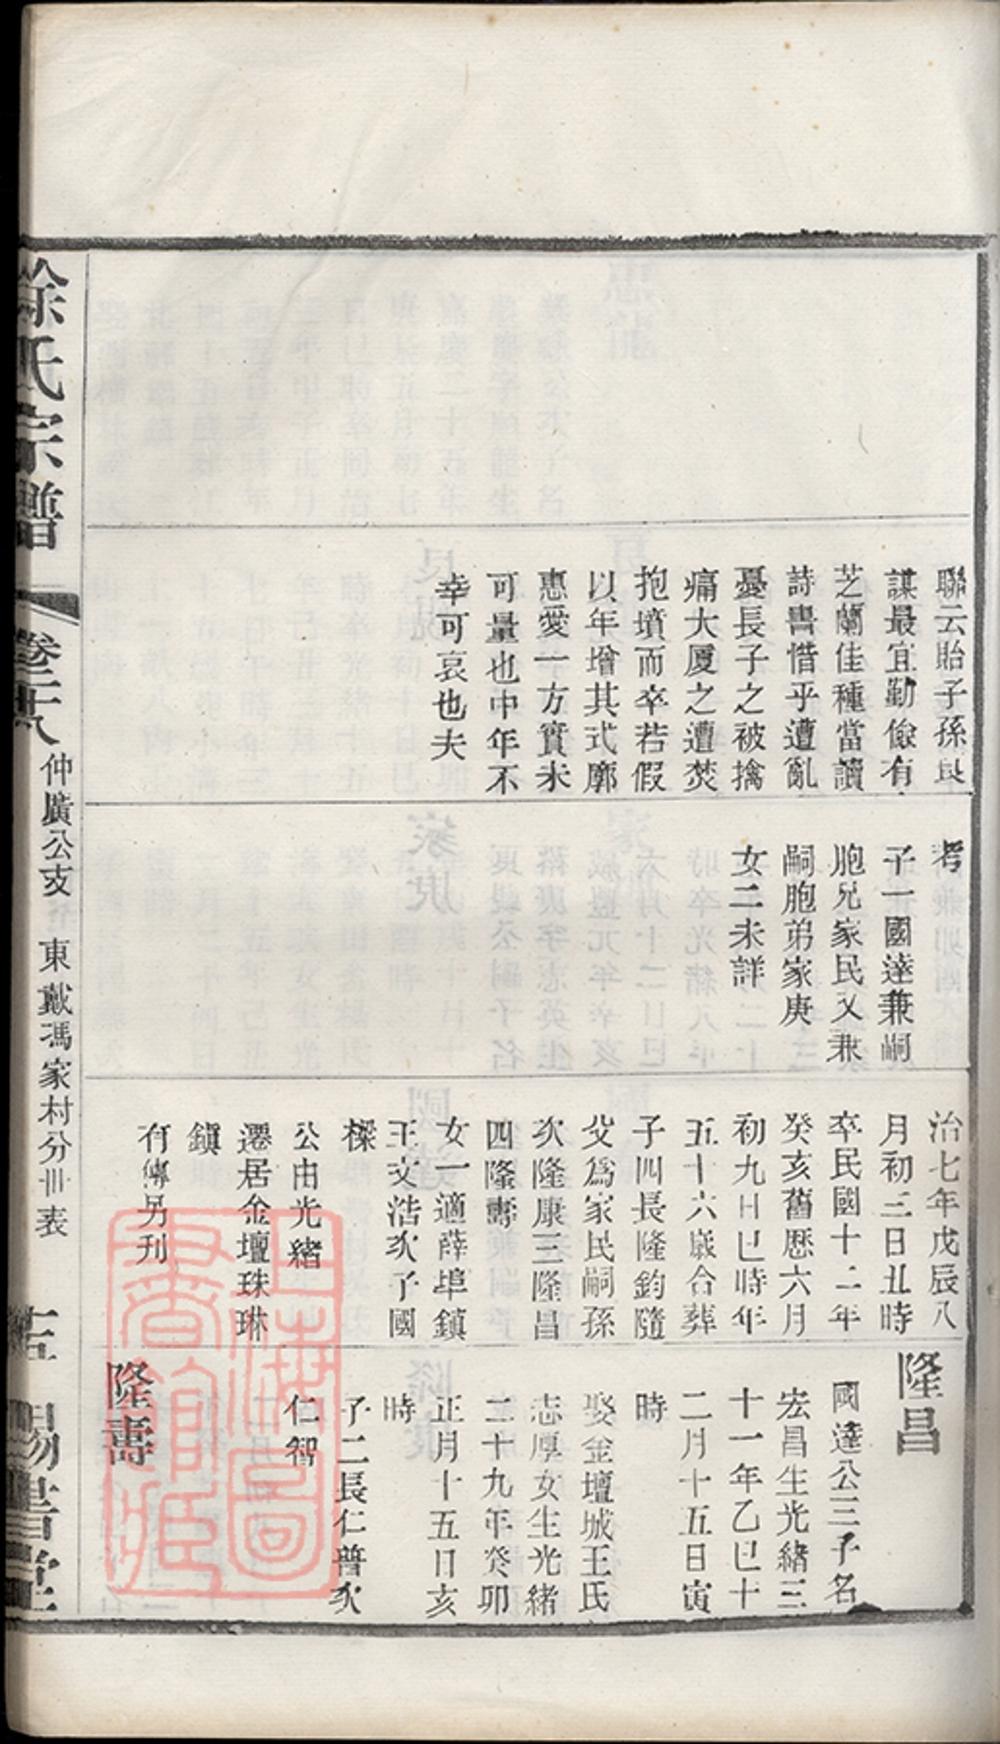 聯云貽子孫良
謀最宜勤儉有
芝蘭佳種當讀
詩書惜乎遭亂
憂長子之被擒
痛大厦之遭焚
抱墳而卒若假
以年增其式廓
惠愛一方實未
可量也中年不
幸可哀也夫
考
子一國達兼嗣
胞兄家民又兼
嗣胞弟家庚
女二未詳
治七年戊辰八
月初三日丑時
卒民國十二年
癸亥舊歷六月
初九日巳時年
五十六歲合葬
子四長隆鈞隨
父為家民嗣孫
次隆康三隆昌
四隆壽
女一適薛埠鎮
王文浩次子國
樑
公由光緒
遷居金壇珠琳
鎮
有傳另刊
隆昌
國達公三子名
宏昌生光緒三
十一年乙巳十
二月十五日寅
時
娶金壇城王氏
志厚女生光緒
二十九年癸卯
正月十五日亥
時
子二長仁普次
仁智
隆壽
徐氏宗譜
卷二十八
仲廣公支
東戴馮家村分卅表
上海圖書館藏